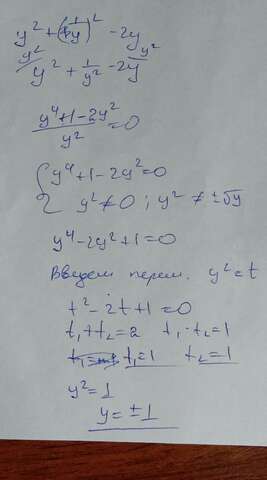 y² + (1/y)² - 2y
y²/ y² + 1/y² - 2y y²/
(y⁴+1-2y²)/y² = 0
{ y⁴+1-2y²=0
y² ≠ 0 ; y² ≠ ±√y
y⁴-2y²+1=0
Введем перем. y²=t
t²-2t+1=0
t₁+t₂=2 t₁·t₂=1
t₁=1 t₂=1
y²=1
y=±1